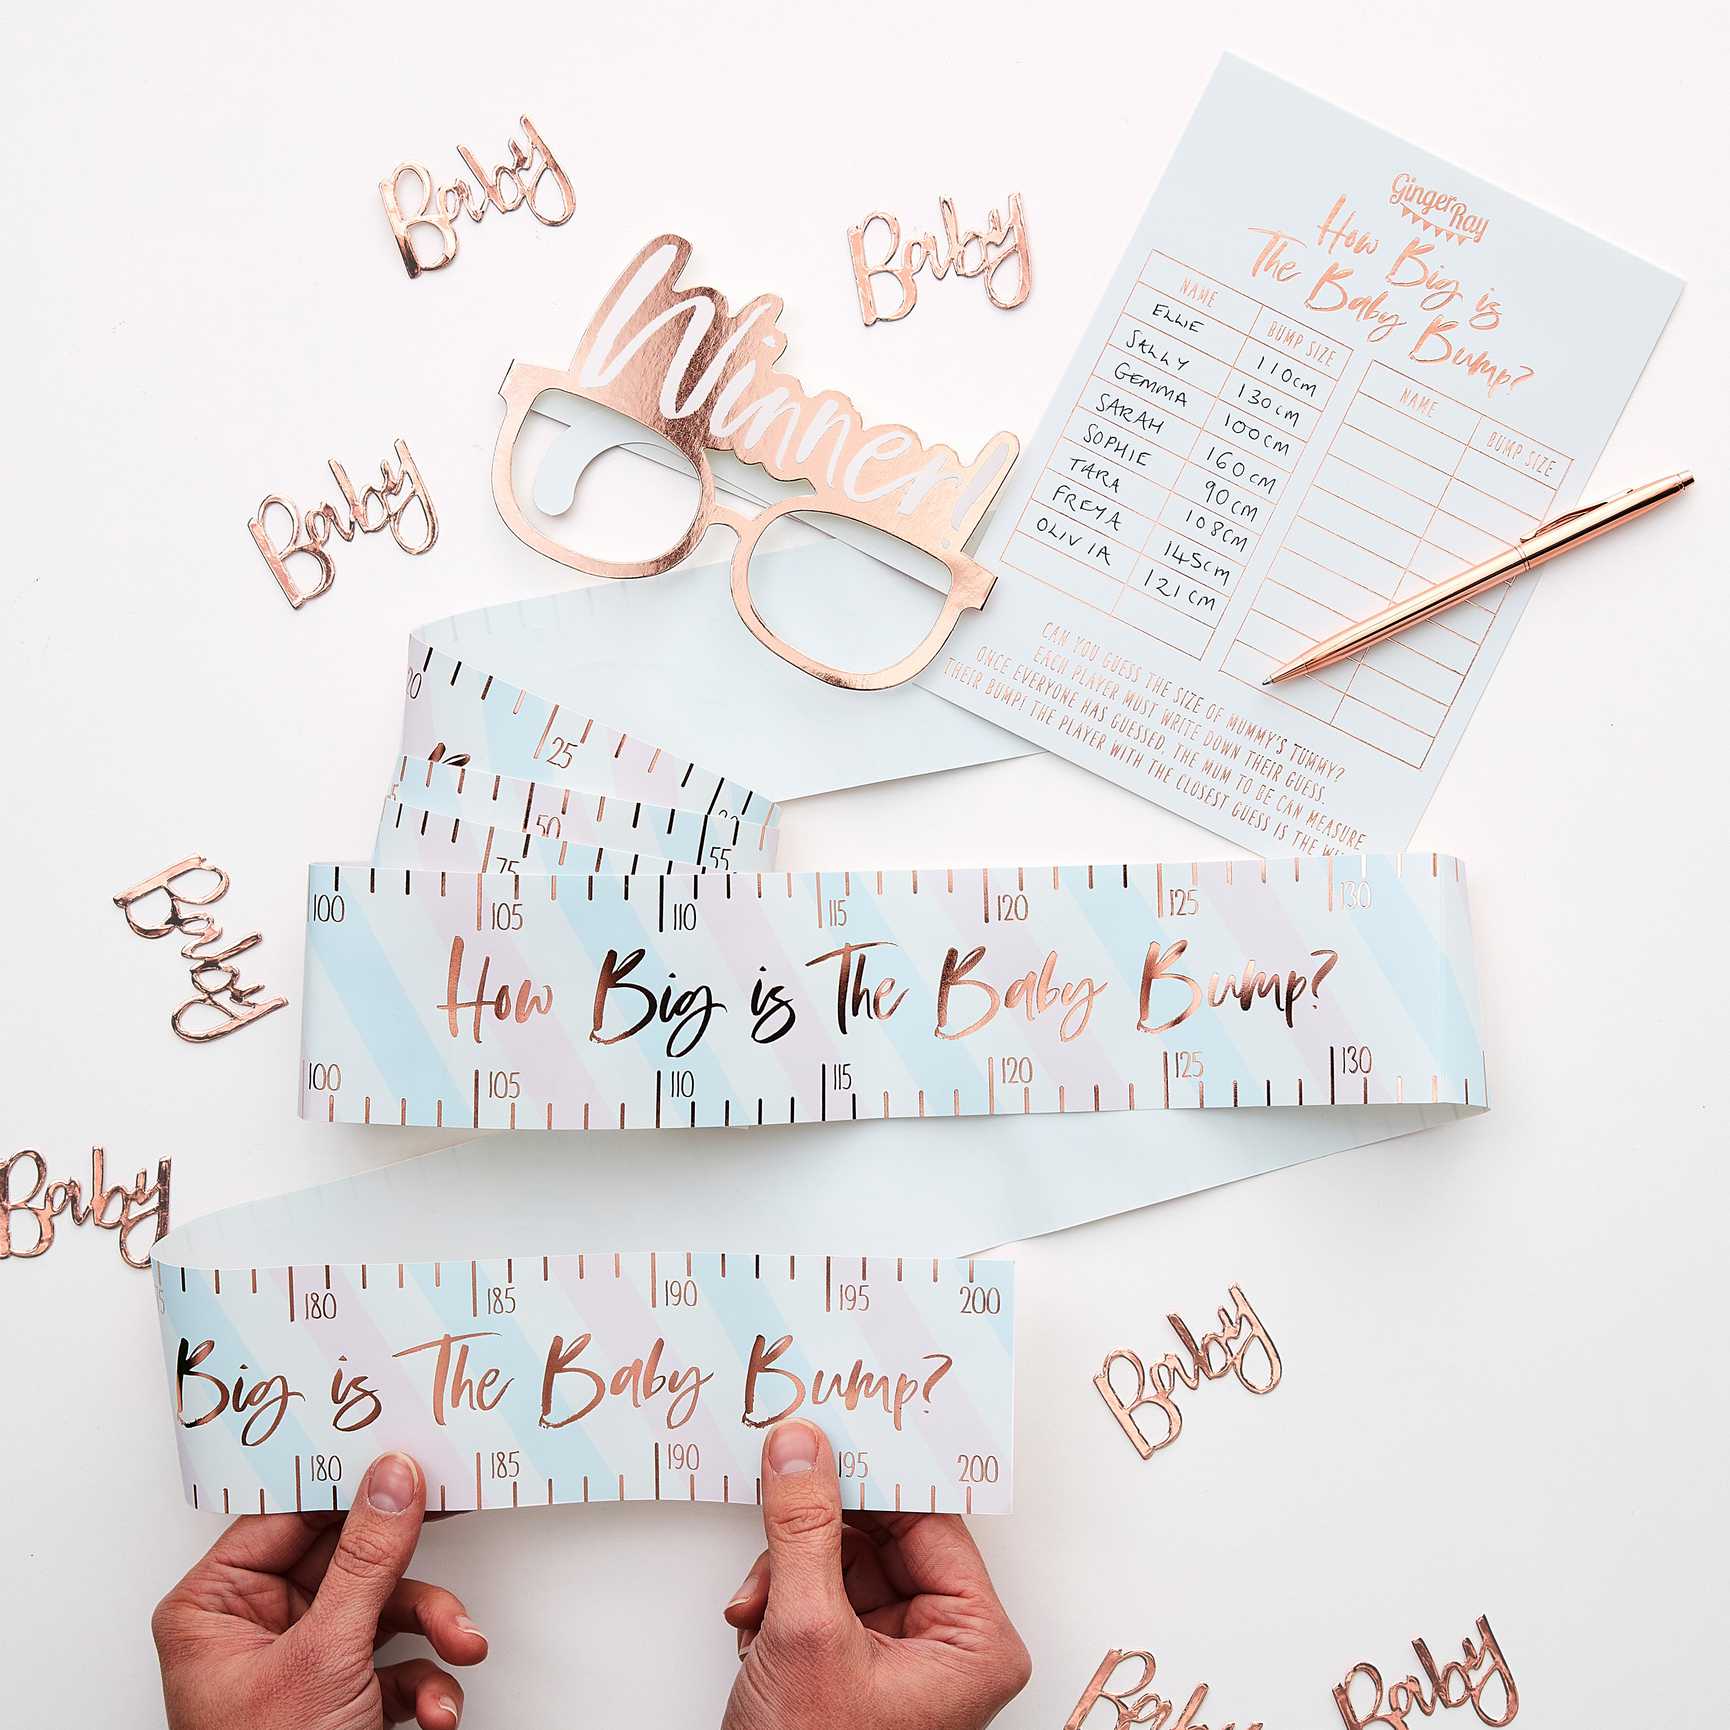 Baby
Baby
Baby
Winner!
Ginger Ray
How Big is
The Baby Bump?
NAME BUMP SIZE
ELLIE 110cm
SALLY 130cm
GEMMA 100cm
SARAH 160cm
SOPHIE 90cm
TARA 108cm
FREYA 145cm
OLIVIA 121cm
NAME BUMP SIZE
CAN YOU GUESS THE SIZE OF MUMMY'S TUMMY?
EACH PLAYER MUST WRITE DOWN THEIR GUESS.
ONCE EVERYONE HAS GUESSED, THE MUM TO BE CAN MEASURE
THEIR BUMP! THE PLAYER WITH THE CLOSEST GUESS IS THE
20 25
50 55
75
100 105 110 115 120 125 130
How Big is The Baby Bump?
100 105 110 115 120 125 130
Baby
Baby
180 185 190 195 200
Big is The Baby Bump?
180 185 190 195 200
Baby
Baby
Baby